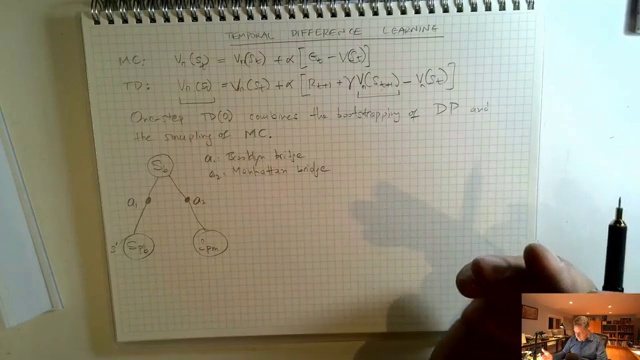 TEMPORAL DIFFERENCE LEARNING
MC: Vπ(St) = Vπ(St) + α [Gt − V(St)]
TD: Vπ(St) = Vπ(St) + α [Rt+1 + γVπ(St+1) − Vπ(St)]
One-step TD(0) combines the bootstrapping of DP and
the sampling of MC.
a1: Brooklyn bridge
a2: Manhattan bridge
Sb
a1 a2
s'